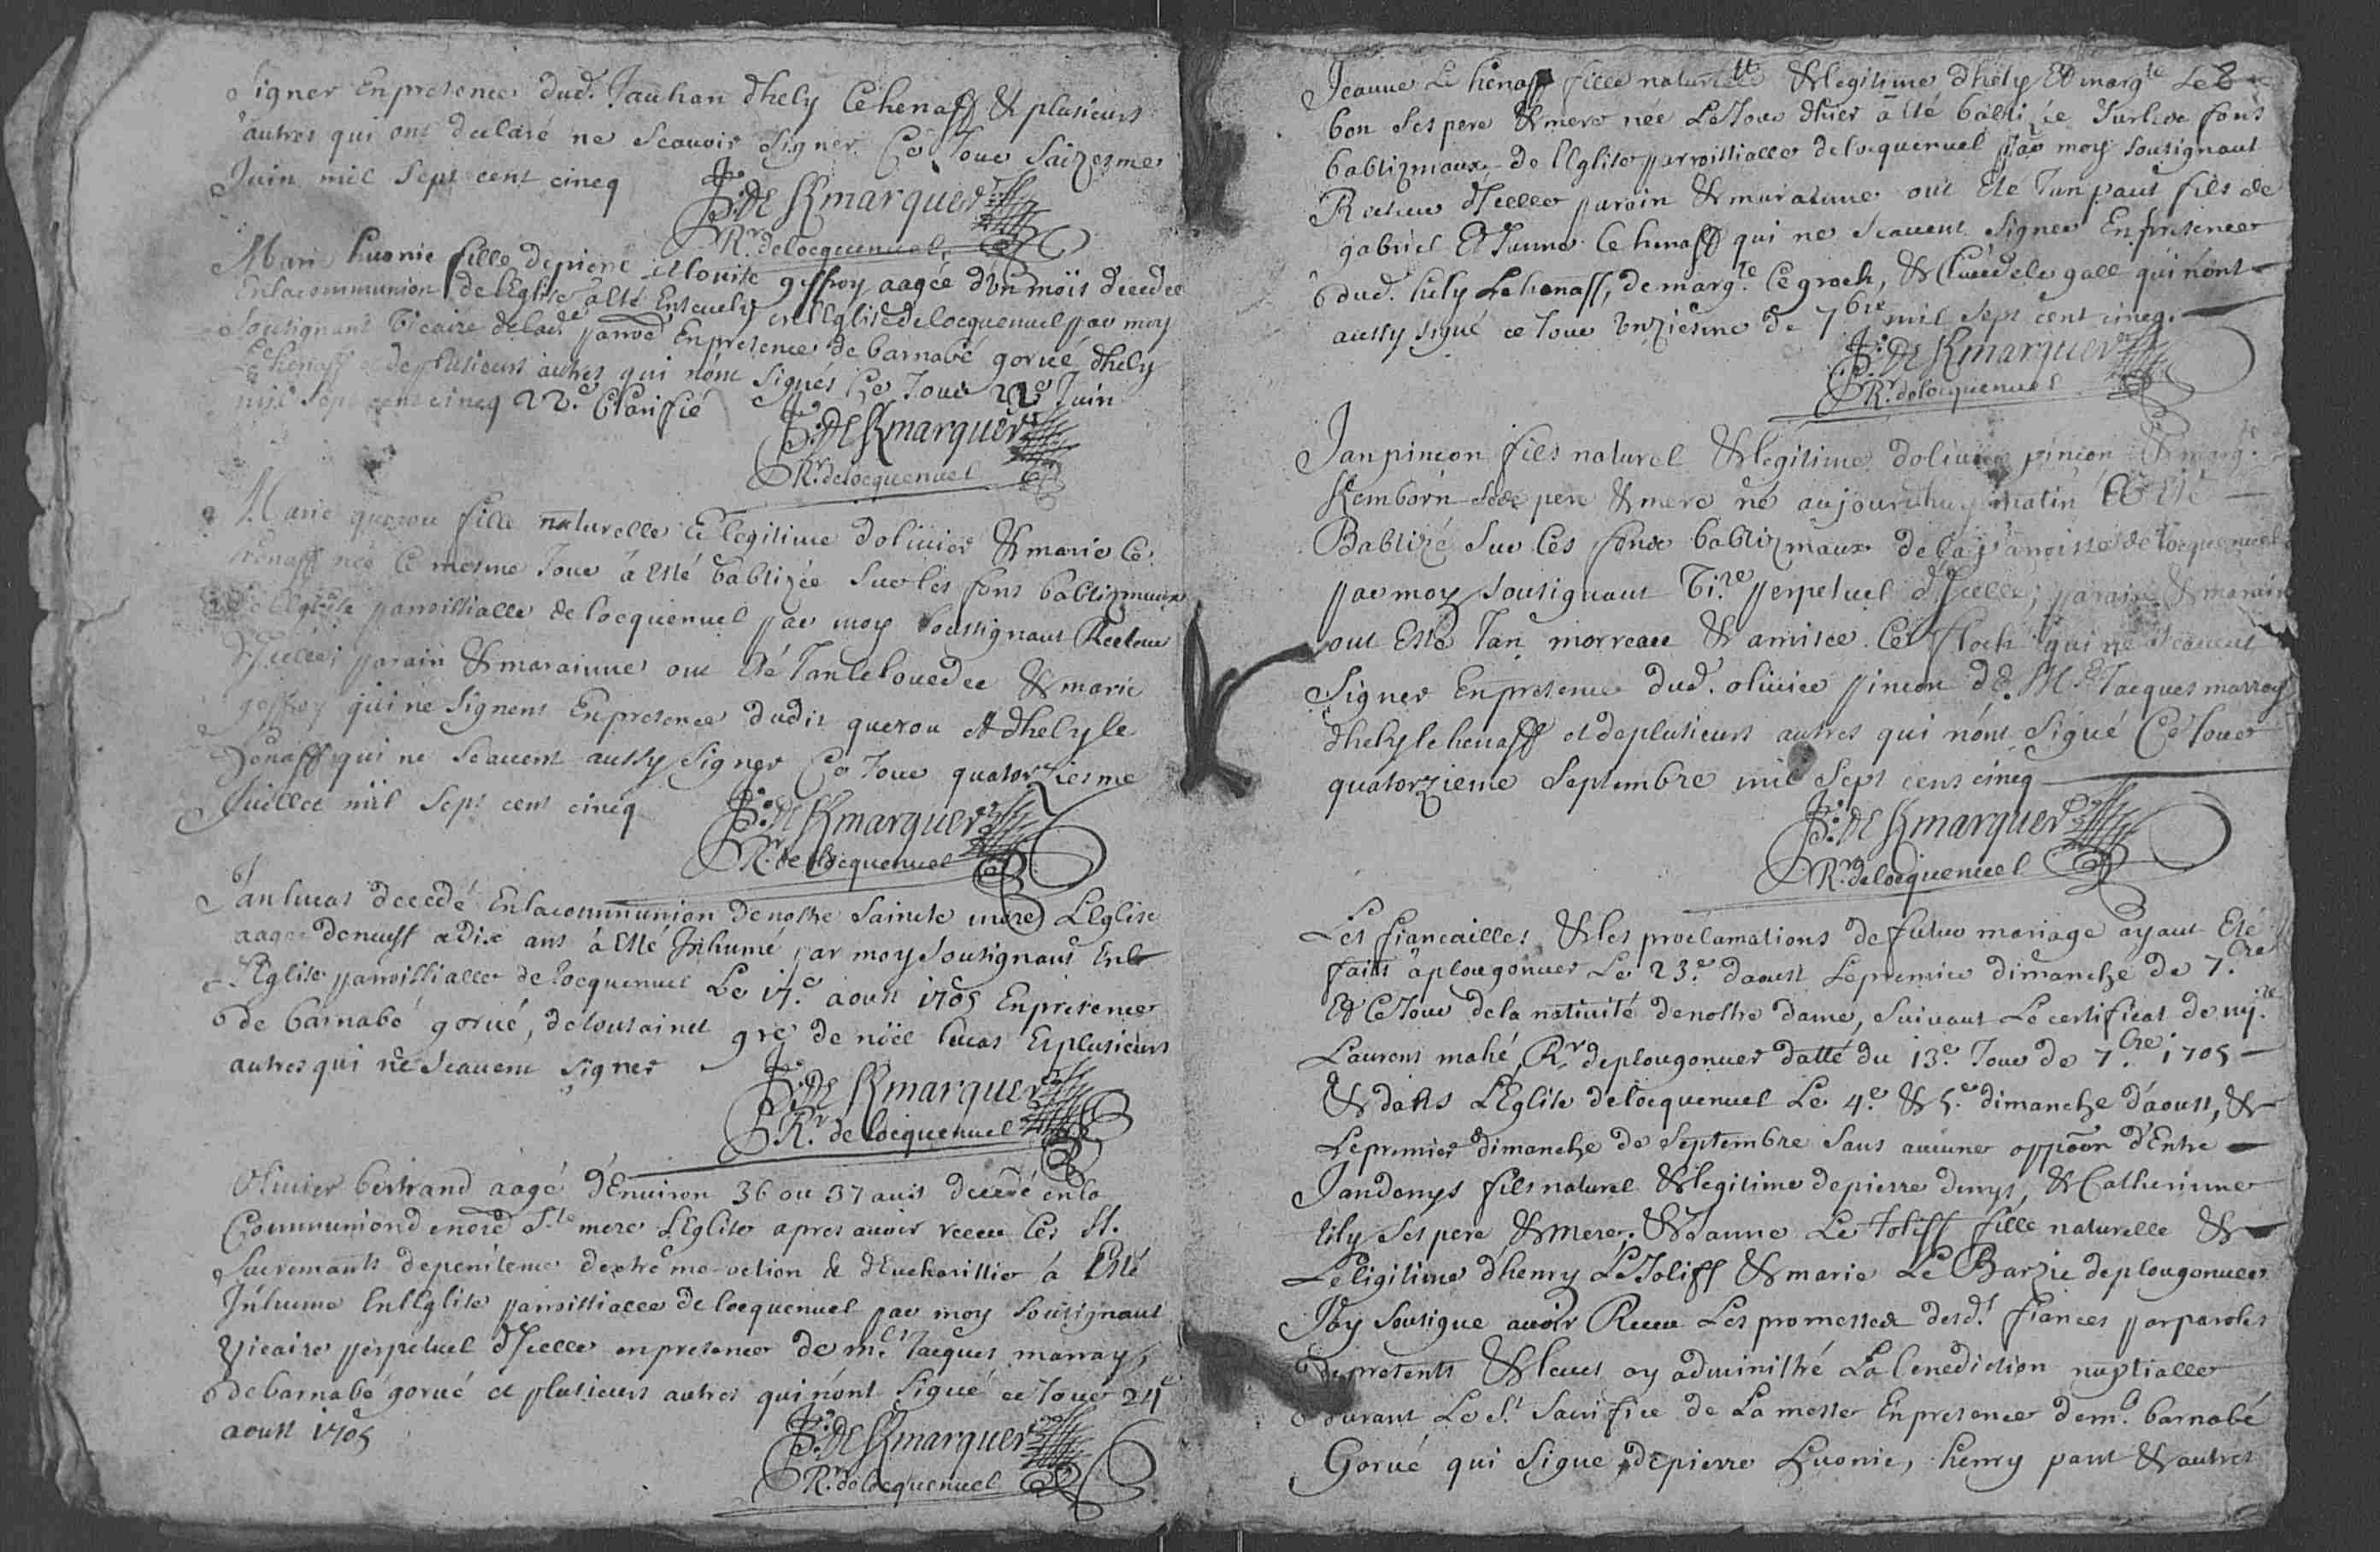 Signer En presence dud. Jauhan dhely Le henaff & plusieurs
autres qui ont declaré ne scavoir Signer Ce Jour Saizesme
Juin mil Sept cent cincq
J: DE Kmarquer
Rr. de locquenuel
Mari huonic fille de pierre et louise geffroy aagée d'un mois decedee
En la communion de l'Eglise a Esté Enscuely en l'Eglise de locquenuel par moy
sousignant Vicaire de lade parroe En presence de barnabé gorué dhely
Le henaff & de plusieurs autres qui n'ont Signés Ce Jour 22e Juin
mil Sept cent cincq 22e Clariffié
J: DE Kmarquer
Rr. de locquenuel
Marie querou fille naturelle et legitime dolivier & marie Le
henaff née Le mesme Jour à Esté babtizée Sur les fons babtizmaux
de l'Eglise parroissialle de locquenuel par moy soussignant Recteur
d'Icelle; parain & marainne ont Esté Jan le louedec & marie
geffroy qui ne Signent En presence dudit querou et dhely le
henaff qui ne Scavent aussy Signer Ce Jour quatorziesme
Juillet mil Sept cent cincq
J: DE Kmarquer
Rr. de locquenuel
Jan lucas decedé En la communion de nostre Saincte mere L'Eglise
aagé de neuff a dix ans à Esté Inhumé par moy Sousignant En
l'Eglise parroissialle de locquenuel Le 17.e aoust 1705 En presence
de barnabé gorué, de toussainct de nöel lucas Et plusieurs
autres qui ne Scavent Signer
J: DE Kmarquer
Rr. de locquenuel
Olivier bertrand aagé d'Environ 36 ou 37 ans decedé en la
Communion de nore Ste mere L'Eglise apres avoir receu les St.
Sacremants de penitence dextrême-onction & d'Eucharistie à Esté
Inhumé En l'Eglise parroissialle de locquenuel par moy Sousignant
Vicaire perpetuel d'Icelle en presence de mre Jacques marray,
de barnabé gorué et plusieurs autres qui n'ont Signé ce Jour 24e
aoust 1705
J: DE Kmarquer
Rr. de locquenuel
Jeanne Le henaff fille naturelle & legitime dhely Et margte Le
bon Ses pere & mere née Le Jour d'hier a Eté babtizée Sur les fons
babtizmaux de l'Eglise parroissialle de locquenuel par moy Sousignant
Recteur d'Icelle parain & marainne ont Eté Jan paut fils de
gabriel Et Janne Le henaff qui ne Scavent Signer En presence
dud. hely Le henaff, de margte Le groch, & le gall qui n'ont
aussy Signé ce Jour unziesme de 7bre mil Sept cent cincq.
J: DE Kmarquer
Rr. de locquenuel
Jan pincon fils naturel & legitime dolivier pincon & margte
Kemborn Ses pere & mere né aujourdhuy matin A Eté
Babtizé Sur Les fons babtizmaux de la parroisse de locquenuel
par moy Sousignant Vi.re perpetuel d'Icelle; parain & marain
ont Esté Jan morreau & amisce Le floch qui ne Scavent
Signer En presence dud. olivier pincon de Mre Jacques marray
dhely le henaff et de plusieurs autres qui n'ont Signé Ce Jour
quatorzieme Septembre mil Sept cent cincq
J: DE Kmarquer
Rr. de locquenuel
Les fiancailles & les proclamations de futur mariage ayant Eté
faits à plougonver Le 23.e daoust Le premier dimanche de 7.bre
Et Ce Jour de la nativité de nostre dame, Suivant Le certificat de
Laurens mahé, Rr de plougonver datté du 13.e Jour de 7.bre 1705
& dans L'Eglise de locquenuel Le 4.e & 5.e dimanche d'aoust, &
Le premier dimanche de Septembre Sans aucune oppoon d'Entre
Jan denys fils naturel & legitime de pierre denys, & Catherinne
lily Ses pere & mere; & Janne Le Joliff fille naturelle &
Legitime d'henry Le Joliff & marie Le Barzic de plougonver
J'ay Sousigne avoir Receu Les promesses desd.t fiances par paroles
de presents & leur ay administré La benediction nuptialle
durant Le St. Sacrifice de La messe En presence de mre barnabé
Gorué qui Signe, de pierre huonic, henry paut & autres